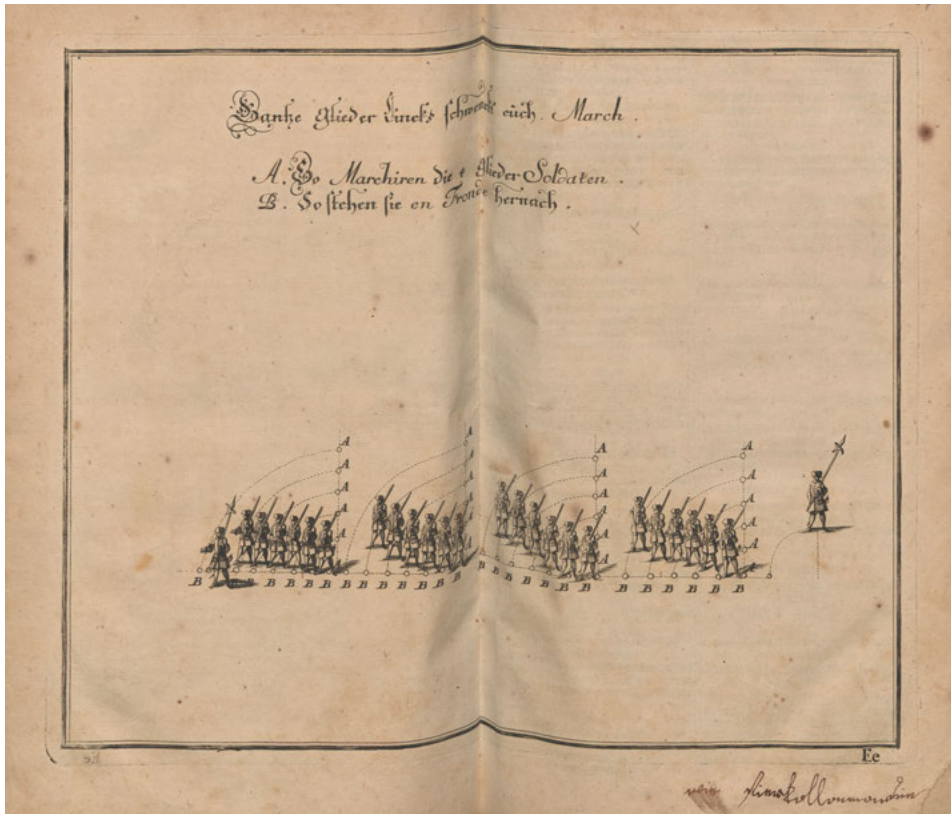 Gantze Glieder Lincks schwenckt euch. March.
A. So Marchiren die Glieder Soldaten.
B. So stehen sie en Fronde hernach.
A A A
A A A
A A A A
A A A A
A A A
B B B B B B B B B B B B B B B B B B B B B B B B
Ee